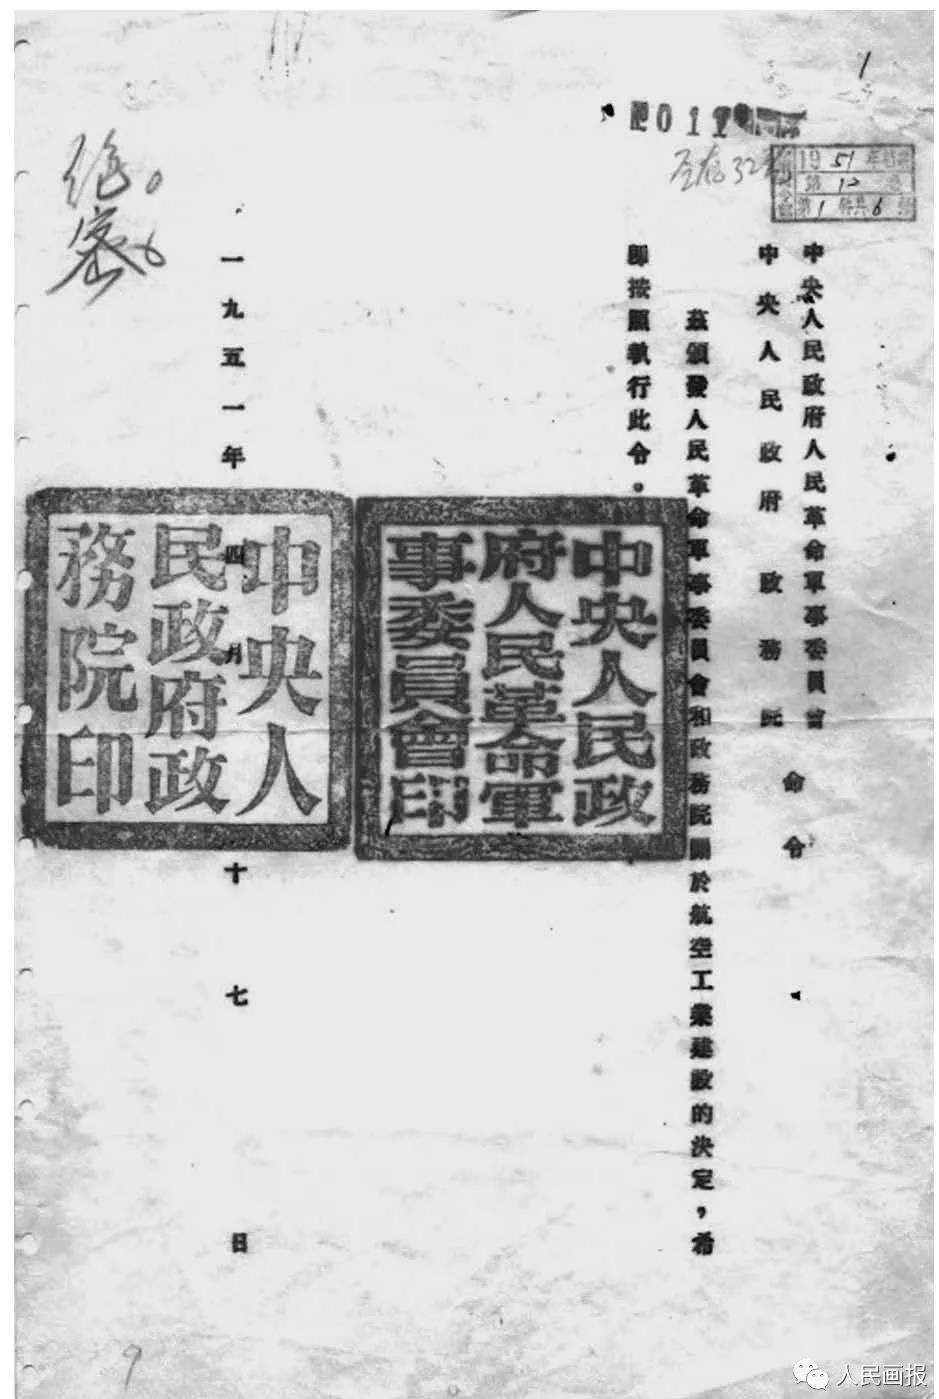 1
011
全存32
1951年
第12
第1件共6
中央人民政府人民革命軍事委員會
中央人民政府政務院
命令
茲頒發人民革命軍事委員會和政務院關於航空工業建設的決定，希
即按照執行此令。
中央人民政
府人民革命軍
事委員會印
一九五一年四月十七日
中央人
民政府政
務院印
绝密
9
人民画报